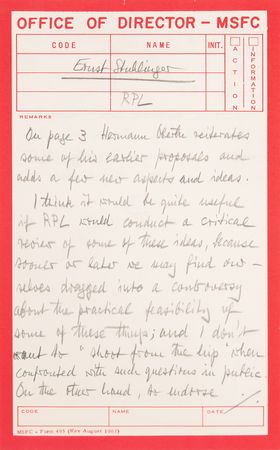 OFFICE OF DIRECTOR – MSFC
CODE NAME INIT. ACTION INFORMATION
Ernst Stuhlinger
RPL
REMARKS
On page 3 Hermann Oberth reiterates
some of his earlier proposals and
adds a few new aspects and ideas.
I think it would be quite useful
if RPL would conduct a critical
review of some of these ideas, because
sooner or later we may find our-
selves dragged into a controversy
about the practical feasibility of
some of these things; and I don't
want to "shoot from the hip" when
confronted with such questions in public.
On the other hand, to endorse ...
CODE NAME DATE
MSFC - Form 495 (Rev August 1961)